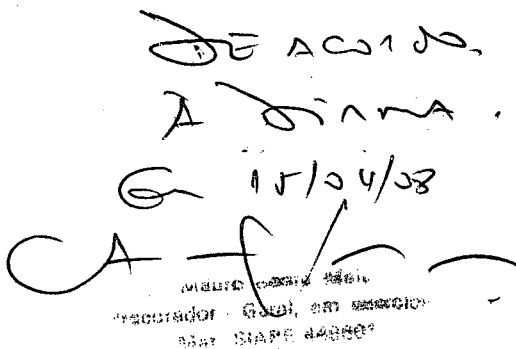 DE ACORDO.
À DIRMA.
Em 15/04/08
Mauro
Procurador - Geral, em exercício
Mat. SIAPE